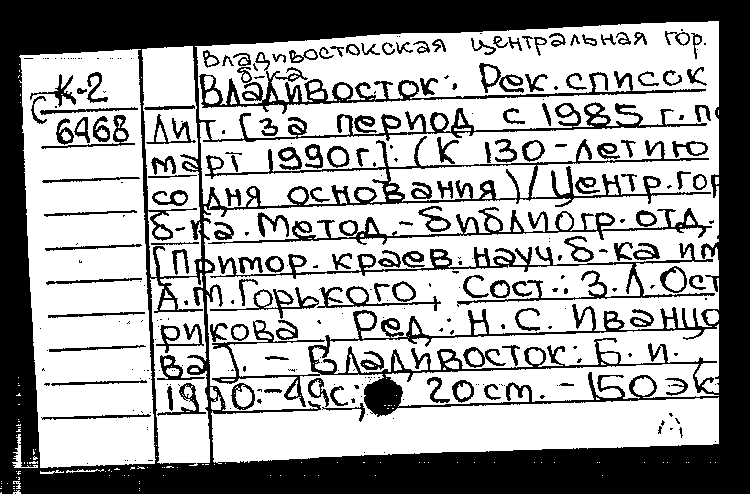 Владивостокская центральная гор.
б-ка
К-2
Владивосток: Рек. список
6468
лит. [за период с 1985 г. по
март 1990г.]: (К 130-летию
со дня основания)/Центр.гор
б-ка. Метод.-библиогр. отд,
[Примор. краев. науч. б-ка им
А.М.Горького; Сост.: З.Л.Ост
рикова; Ред.: Н.С. Иванцо
ва]. - Владивосток: Б.и.,
1990.-49с.; 20 cm. - 150 эк